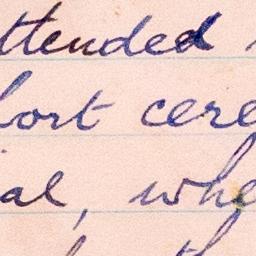 ttended
hort cere
ial, whe
th